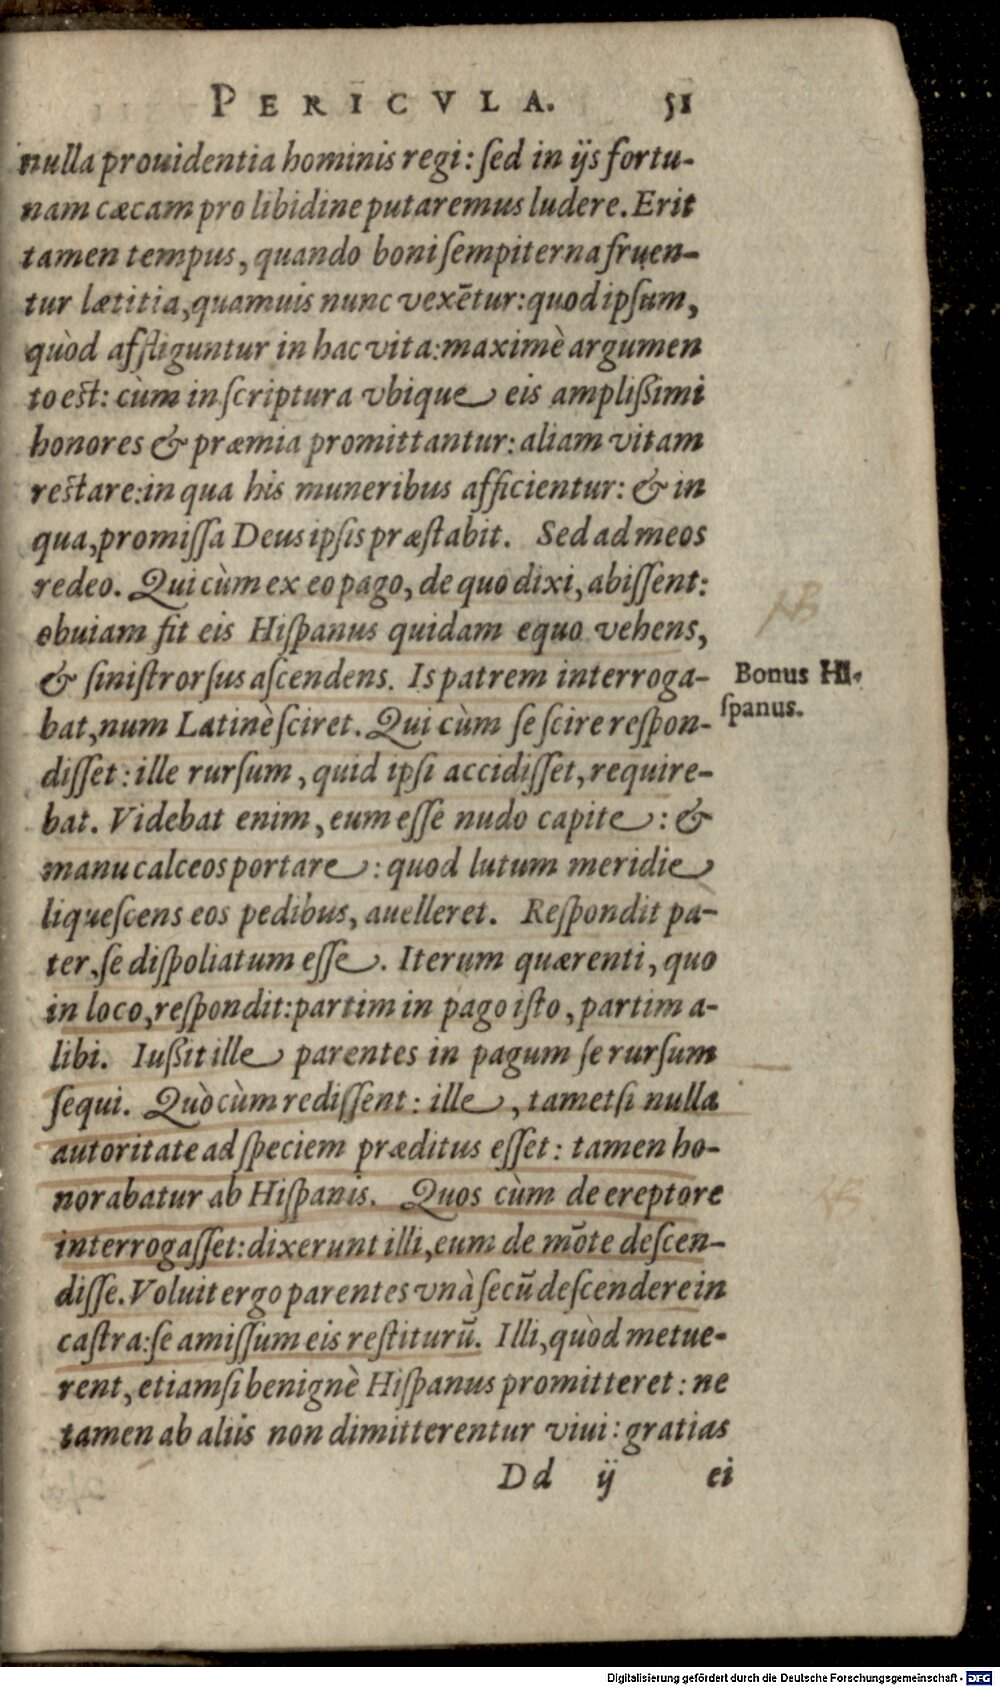 PERICVLA. 51
nulla prouidentia hominis regi: ſed in ijs fortu-
nam cæcam pro libidine putaremus ludere. Erit
tamen tempus, quando boni ſempiterna fruen-
tur lætitia, quamuis nunc vexẽtur: quod ipſum,
quòd affliguntur in hac vita: maximè argumen
to est: cùm in ſcriptura vbique eis ampliſſimi
honores & præmia promittantur: aliam vitam
restare: in qua his muneribus afficientur: & in
qua, promiſſa Deus ipſis præſtabit. Sed ad meos
redeo. Qui cùm ex eo pago, de quo dixi, abiſſent:
obuiam fit eis Hiſpanus quidam equo vehens,
& ſiniſtrorſus aſcendens. Is patrem interroga-
bat, num Latinè ſciret. Qui cùm ſe ſcire reſpon-
diſſet: ille rurſum, quid ipſi accidiſſet, require-
bat. Videbat enim, eum eſſe nudo capite: &
manu calceos portare: quod lutum meridie
liqueſcens eos pedibus, auelleret. Reſpondit pa-
ter, ſe diſpoliatum eſſe. Iterum quærenti, quo
in loco, reſpondit: partim in pago iſto, partim a-
libi. Iußit ille parentes in pagum ſe rurſum
ſequi. Quò cùm rediſſent: ille, tametſi nulla
autoritate ad ſpeciem præditus eſſet: tamen ho-
norabatur ab Hiſpanis. Quos cùm de ereptore
interrogaſſet: dixerunt illi, eum de mõte deſcen-
diſſe. Voluit ergo parentes vnà ſecũ deſcendere in
caſtra: ſe amiſſum eis reſtiturũ. Illi, quòd metue-
rent, etiamſi benignè Hiſpanus promitteret: ne
tamen ab aliis non dimitterentur viui: gratias
Dd ij ei
NB
Bonus Hi-
ſpanus.
NB
Digitalisierung gefördert durch die Deutsche Forschungsgemeinschaft - DFG